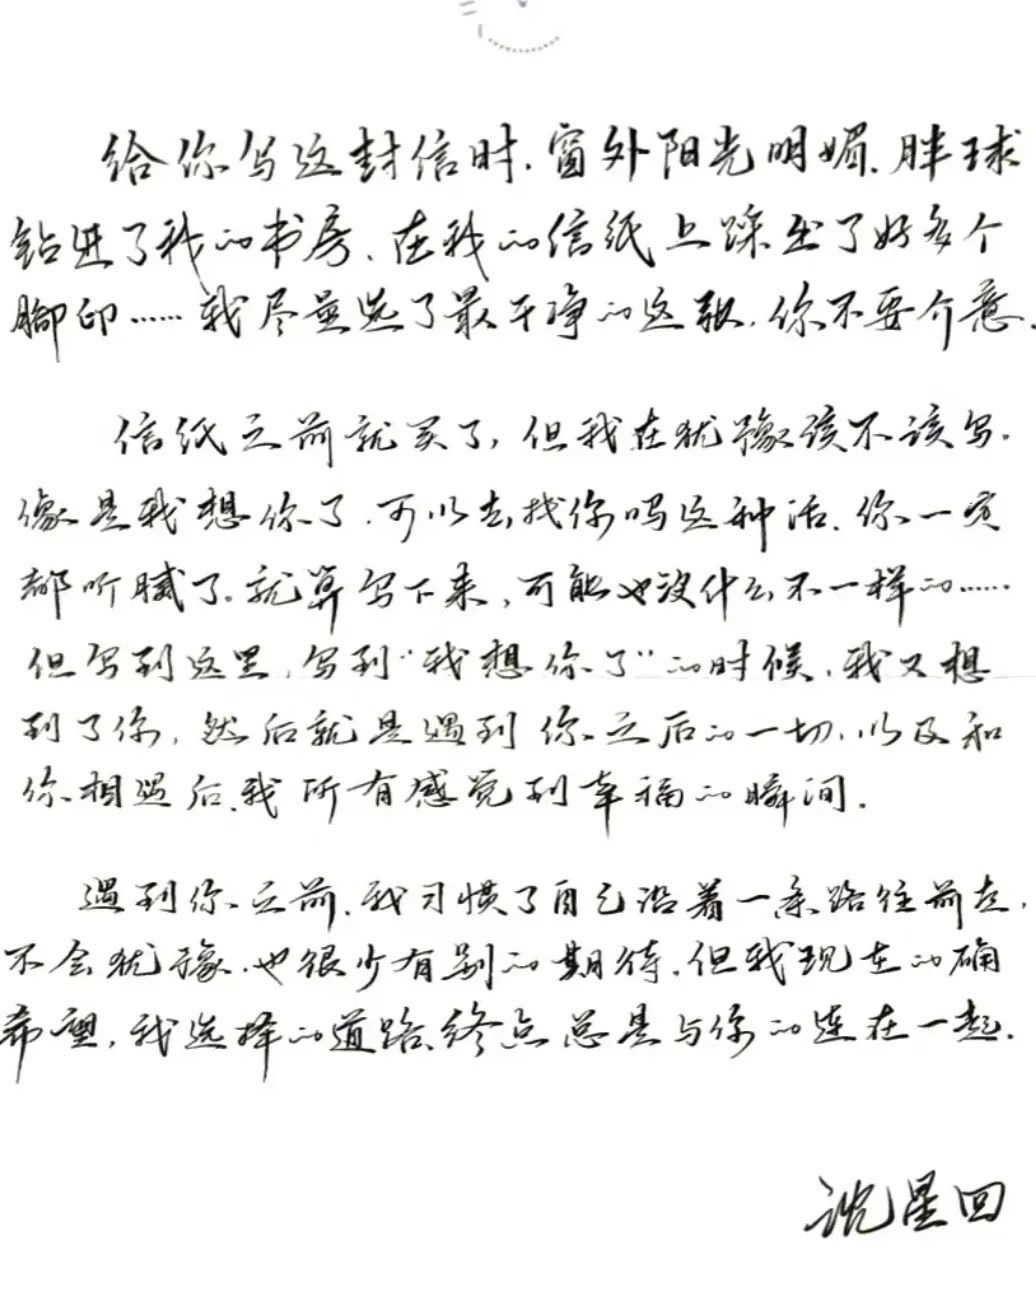 给你写这封信时,窗外阳光明媚,胖球
钻进了我的书房,在我的信纸上踩出了好多个
脚印……我尽量选了最干净的这张,你不要介意.
信纸之前就买了,但我在犹豫该不该写.
像是我想你了,可以去找你吗这种话,你一定
都听腻了。就算写下来,可能也没什么不一样的……
但写到这里,写到“我想你了”的时候,我又想
到了你,然后就是遇到你之后的一切,以及和
你相遇后,我所有感觉到幸福的瞬间.
遇到你之前,我习惯了自己沿着一条路往前走,
不会犹豫,也很少有别的期待,但我现在的确
希望,我选择的道路,终点总是与你的连在一起.
沈星回